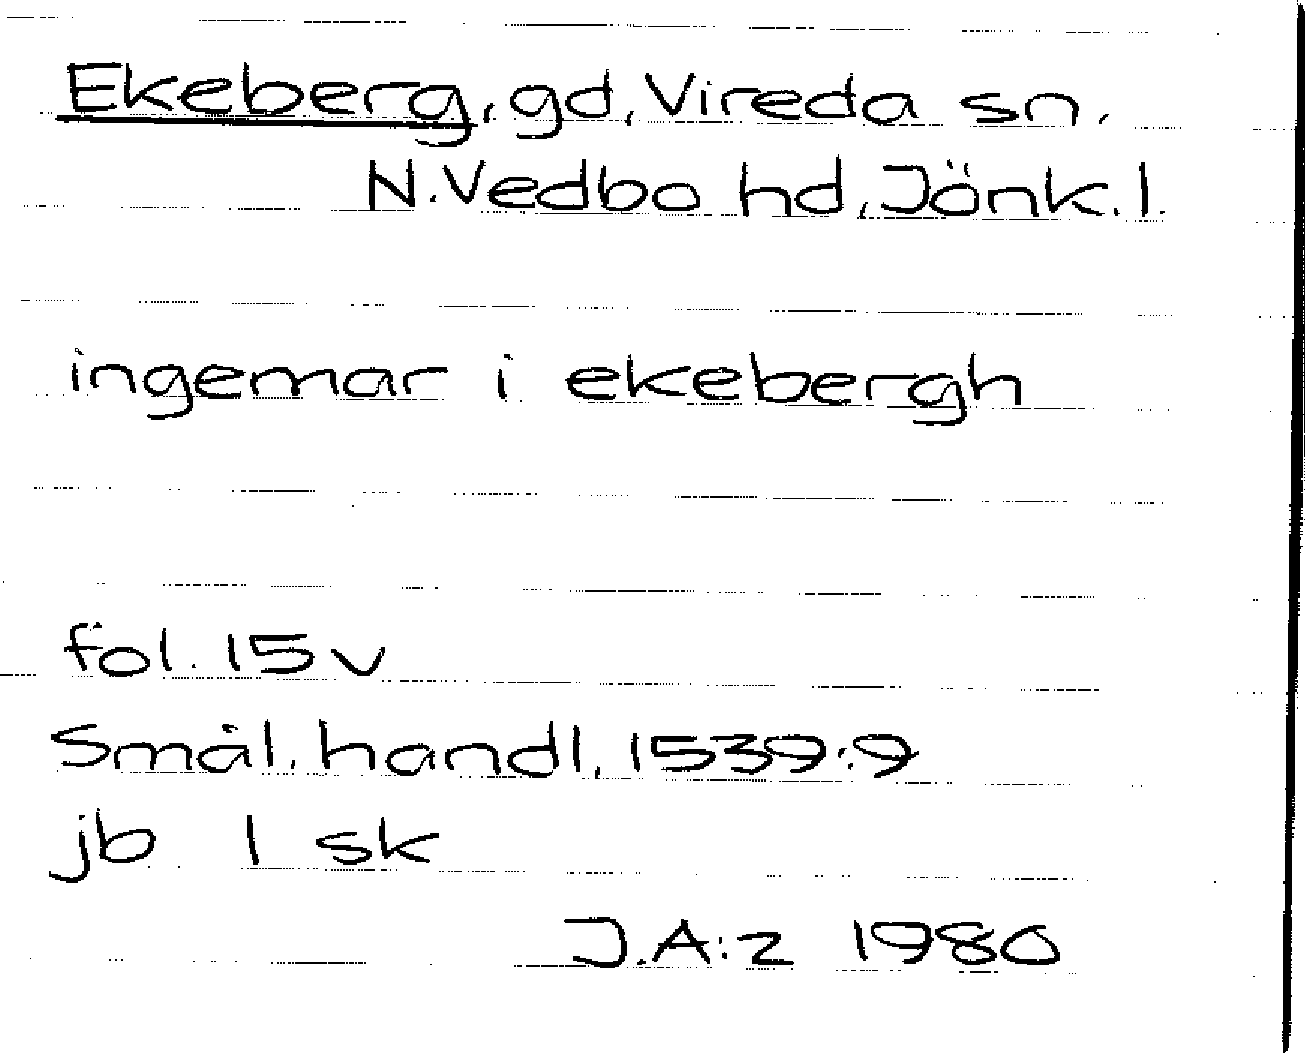 Ekeberg, gd, Vireda sn,
N. Vedbo hd, Jönk. l.
ingemar i ekebergh
fol. 15 v
Smål. handl, 1539:9
jb 1 sk
J.A:z 1980